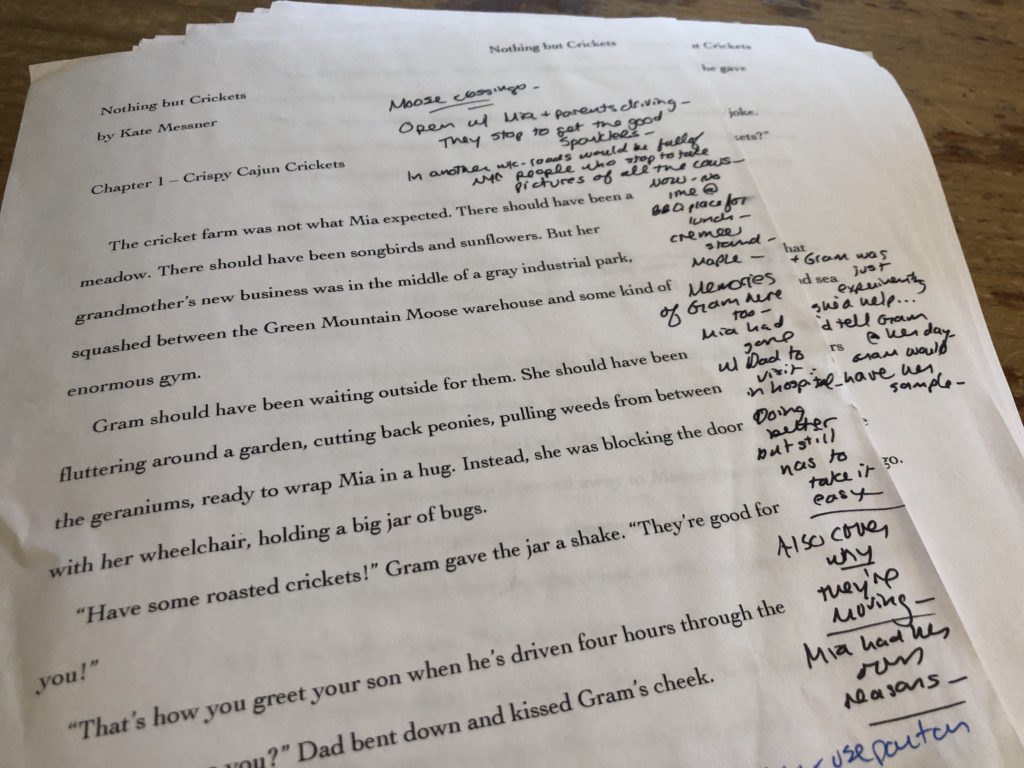 Nothing but Crickets
t Crickets
he gave
joke.
tets?"
Nothing but Crickets
by Kate Messner
Moose cossingo -
Open w/ Mia + parents driving -
They stop to get the good
sparklers -
In another wk - roads would be full of
NYC people who stop to take
pictures of all the cows -
Chapter 1 – Crispy Cajun Crickets
The cricket farm was not what Mia expected. There should have been a
meadow. There should have been songbirds and sunflowers. But her
grandmother's new business was in the middle of a gray industrial park,
squashed between the Green Mountain Moose warehouse and some kind of
enormous gym.
Gram should have been waiting outside for them. She should have been
fluttering around a garden, cutting back peonies, pulling weeds from between
the geraniums, ready to wrap Mia in a hug. Instead, she was blocking the door
with her wheelchair, holding a big jar of bugs.
"Have some roasted crickets!" Gram gave the jar a shake. "They're good for
you!"
"That's how you greet your son when he's driven four hours through the
you?" Dad bent down and kissed Gram's cheek.
Now - no
line @
BBQ place for
lunch -
creemee
stand -
Maple -
Memories
of Gram here
too -
Mia had
gone
w/ Dad to
visit
in hospital -
Doing
better
but still
has to
take it
easy
Also cover
why
they're
moving -
Mia had her
own
reasons -
use
hat
+ Gram was
just
id sea
experimenting
help...
d tell Gram
rs
@ her day
Gram would
have her
sample -
go.